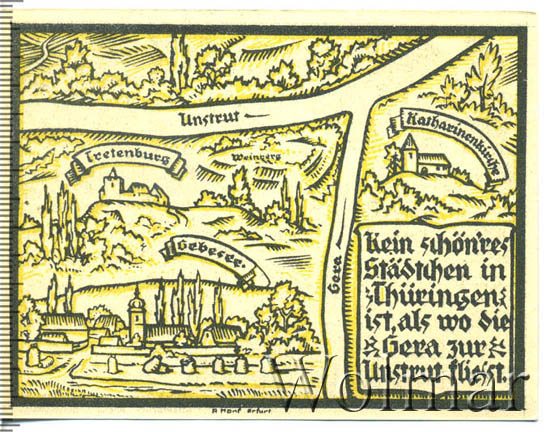 Unstrut
Katharinenkirche
Tretenburg
Weinberg
Gebesee.
Gera
Kein schön'res
Städtchen in
Thüringen
ist, als wo die
Gera zur
Unstrut fliesst.
Wolmar